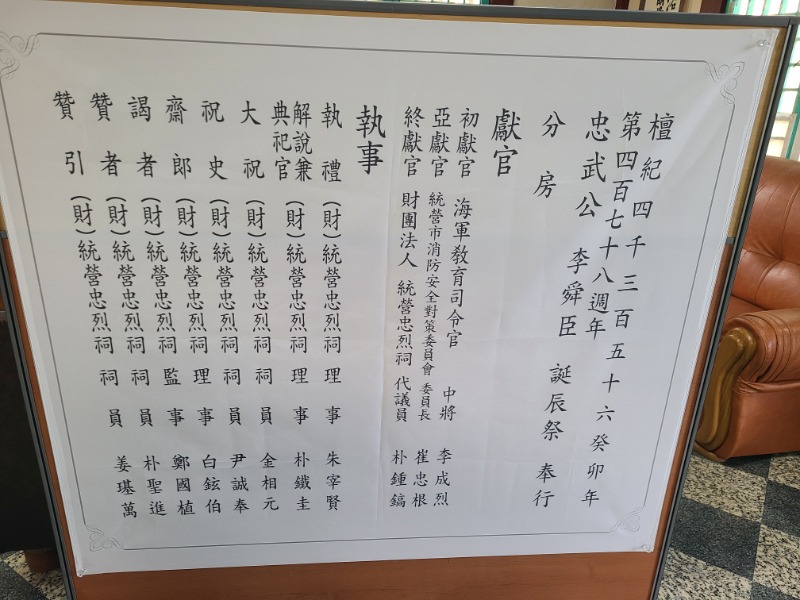 檀紀四千三百五十六癸卯年
第四百七十八週年
忠武公 李舜臣 誕辰祭 奉行
分房
獻官
初獻官 海軍教育司令官 中將 李成烈
亞獻官 統營市消防安全對策委員會 委員長 崔忠根
終獻官 財團法人 統營忠烈祠 代議員 朴鍾鎬
執事
執禮 (財)統營忠烈祠 理事 朱宰賢
解說兼典祀官 (財)統營忠烈祠 理事 朴鐵圭
大祝 (財)統營忠烈祠 祠員 金相元
祝史 (財)統營忠烈祠 祠員 尹誠奉
齋郎 (財)統營忠烈祠 理事 白鉉伯
謁者 (財)統營忠烈祠 監事 鄭國植
贊者 (財)統營忠烈祠 祠員 朴聖進
贊引 (財)統營忠烈祠 祠員 姜堪萬